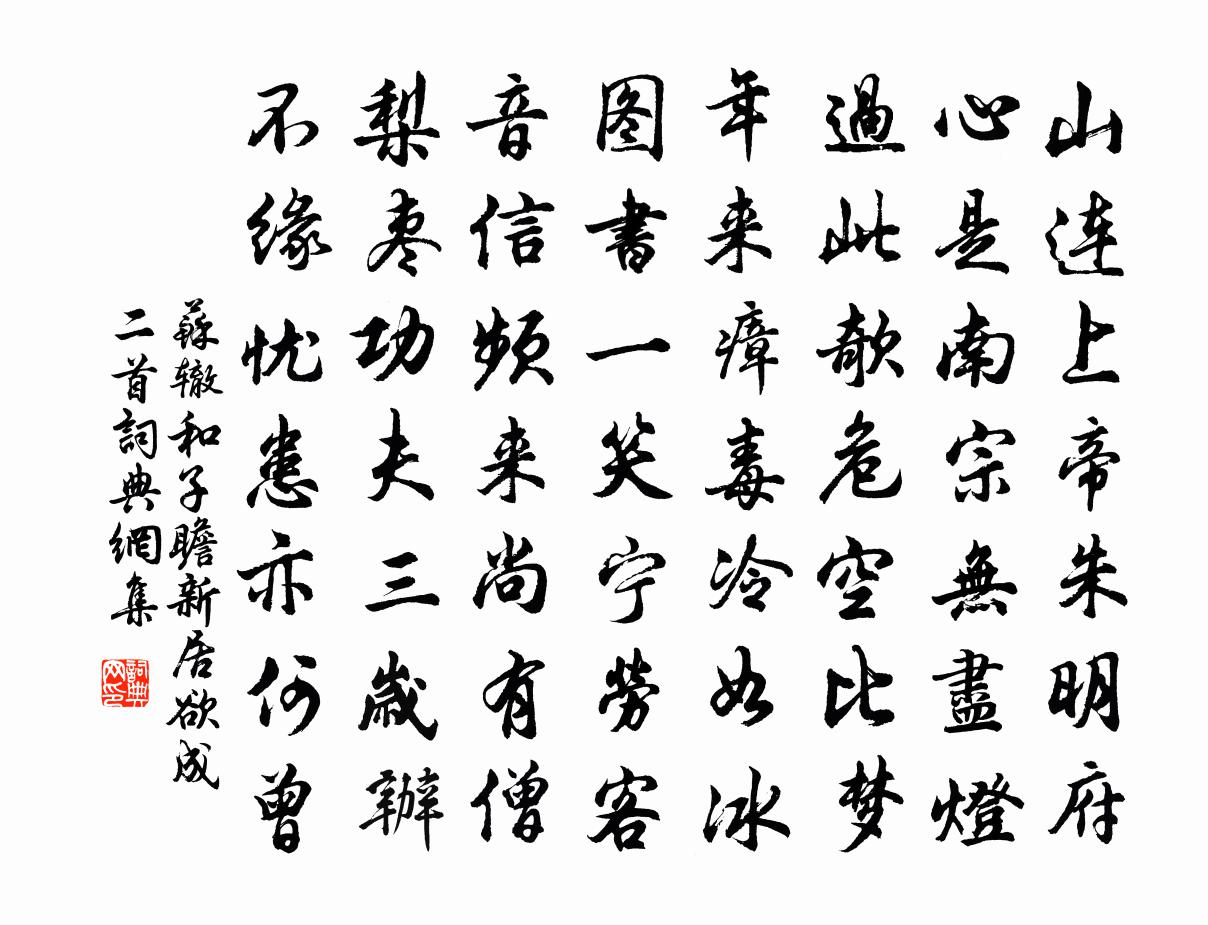 山连上帝朱明府
心是南宗無盡燈
過此欹危空比梦
年来瘴毒冷如冰
图書一笑宁勞客
音信頻来尚有僧
梨枣功夫三歲辦
不缘忧患亦何曾
蘇辙和子瞻新居欲成
二首詞典網集
詞典网印